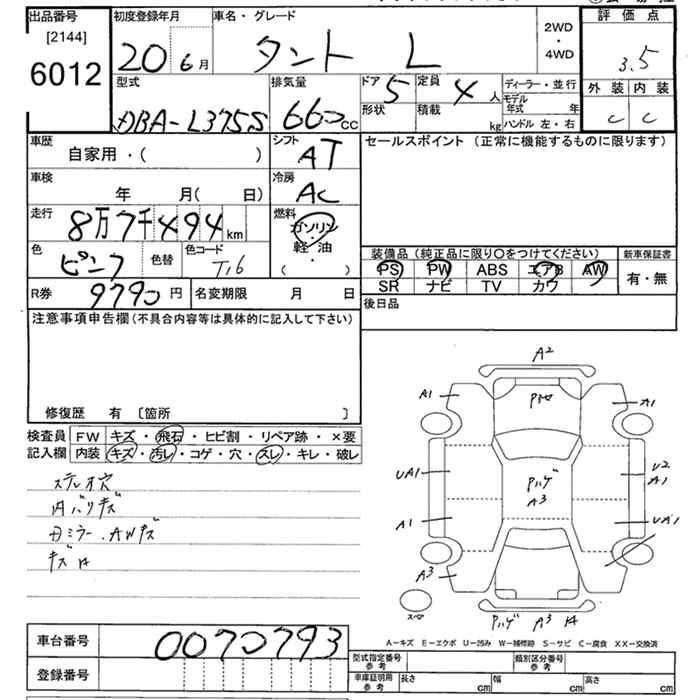 出品番号
[2144]
6012
初度登録年月
20 6月
車名・グレード
タント L
2WD
・
4WD
評価点
3.5
外装 内装
C C
型式
DBA-L375S
排気量
660cc
ドア 5
形状
定員 4人
積載 kg
ディーラー・並行
モデル年式 年
ハンドル 左・右
車歴
自家用・( )
シフト
AT
セールスポイント (正常に機能するものに限ります)
車検
年 月( 日)
冷房
AC
走行
8万7千494km
燃料
ガソリン
・
軽油
( )
色
ピンク
色替
色コード
T16
装備品 (純正品に限り○をつけてください)
PS PW ABS エアB AW
SR ナビ TV カワ
新車保証書
有・無
R券 9790円
名変期限 月 日
後日品
注意事項申告欄 (不具合内容等は具体的に記入して下さい)
修復歴 有 [箇所 ]
検査員
記入欄
FW キズ・飛石・ヒビ割・リペア跡・×要
内装 キズ・汚レ・コゲ・穴・スレ・キレ・破レ
ステレオ穴
内バリキズ
AWキズ
A2
A1
A1
UA1
Pハゲ
A3
U2
A1
A1
UA1
A3
スペア
Pハゲ A3
A-キズ E-エクボ U-凹み W-補修跡 S-サビ C-腐食 XX-交換済
車台番号 0070793
登録番号
型式指定番号
参考
類別区分番号
参考
車庫証明用
参考
長さ cm
幅 cm
高さ cm